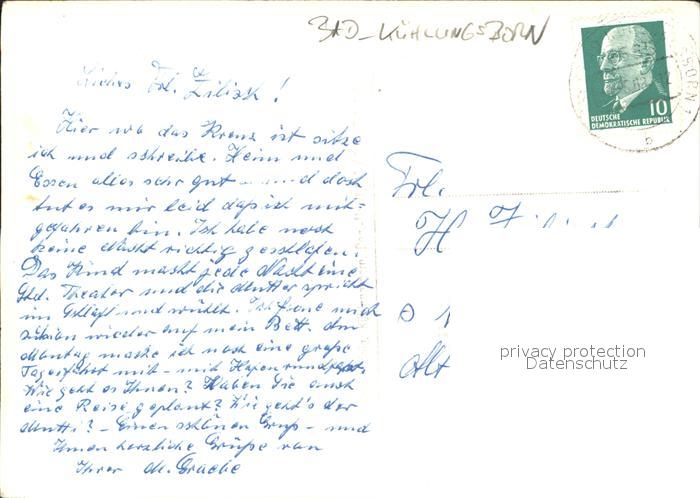 BAD-KÜHLUNGSBORN
Liebes Frl. Zilisch!
Hier wo das Kreuz ist sitze
ich und schreibe. Heim und
Essen alles sehr gut - und doch
tut es mir leid daß ich mit-
gefahren bin. Ich habe noch
keine Nacht richtig geschlafen.
Das Kind macht jede Nacht eine
Std. Theater und die Mutter spricht
im Schlaf und wühlt. Ich freue mich
schon wieder auf mein Bett. Am
Montag mache ich noch eine große
Tagesfahrt mit - mit Hafenrundfahrt.
Wie geht es Ihnen? Haben Sie auch
eine Reise geplant? Wie geht's der
Mutti? - Einen schönen Gruß - und
Ihnen herzliche Grüße von
Ihrer M. Graebe
10
DEUTSCHE
DEMOKRATISCHE REPUBLIK
SBORN 1
b
Frl.
H
1
Alt
privacy protection
Datenschutz